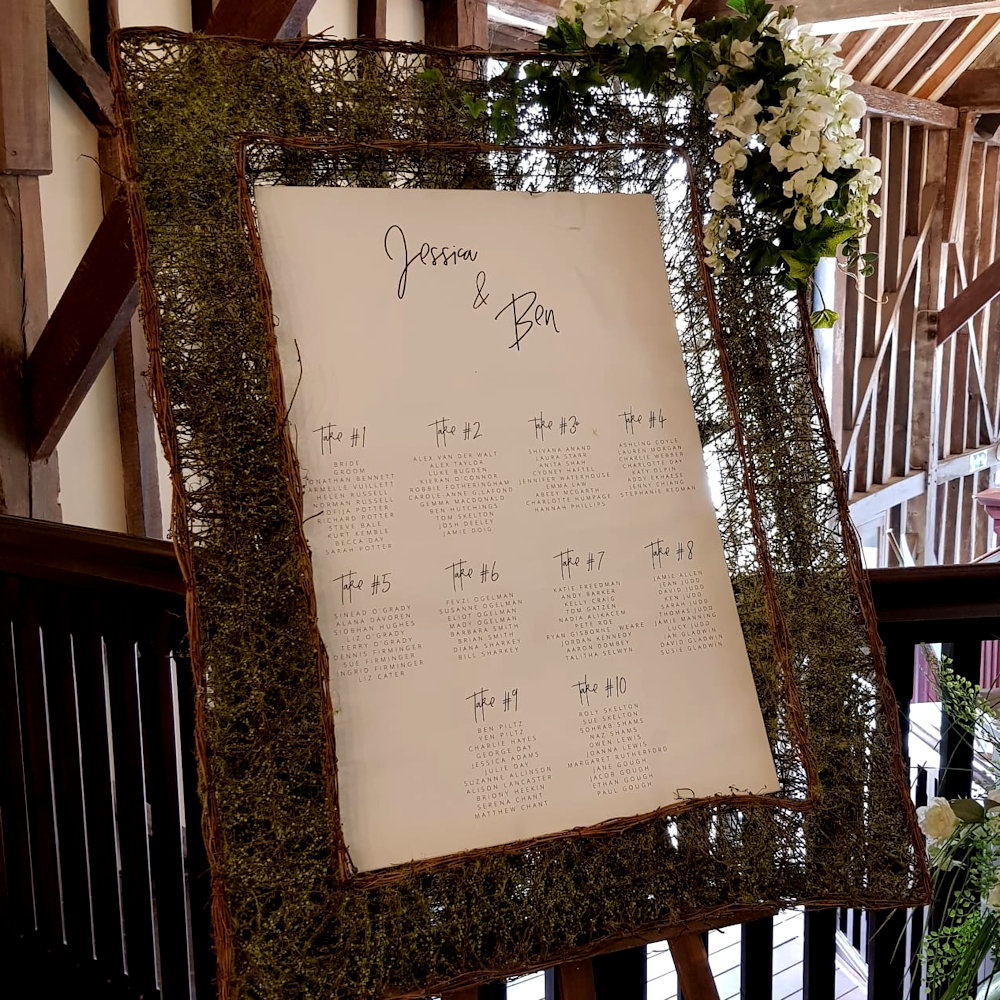 Jessica
&
Ben
Take #1
BRIDE
GROOM
JONATHAN BENNETT
HELEN RUSSELL
NORMAN RUSSELL
SOFIJA POTTER
RICHARD POTTER
STEVE BALE
KURT KEMBLE
BECCA DAY
SARAH POTTER
Take #2
ALEX VAN DER WALT
ALEX TAYLOR
LUKE BUGDEN
KIERAN O'CONNOR
ROBBIE FOTHERINGHAM
CAROLE-ANNE GLAFOND
GEMMA MCDONALD
BEN HUTCHINGS
TOM SKELTON
JOSH DEELEY
JAMIE DOIG
Take #3
SHIVANA ANAND
JANA STARK
ANITA SHAH
CYBELE HARTEL
JENNIFER WATERHOUSE
ABEEY MCGARTH
CHARLOTTE NUMPAGE
HANNAH PHILLIPS
Take #4
ASHLING COYLE
LAUREN MORGAN
CHARLIE WEBBER
ADDI
STEPHANIE REDMAN
Take #5
SINEAD O'GRADY
ALANA DAVOREN
SIOBHAN HUGHES
LIZ O'GRADY
TERRY O'GRADY
DENNIS FIRMINGER
SUE FIRMINGER
INGRID FIRMINGER
LIZ CATER
Take #6
FEVZI OGELMAN
SUSANNE OGELMAN
ELIOT OGELMAN
MADI OGELMAN
BARBARA SMITH
BRIAN SMITH
DIANA SHARKEY
BILL SHARKEY
Take #7
KATIE FREEDMAN
ANDY BARKER
KELLY CRAIG
TOM GATZEN
NADIA ATTARZEM
PETE ROE
RYAN GISBORNE WEARE
JORDAN KENNEDY
AARON DOMBEY
TALITHA SELWYN
Take #8
JAMIE ALLEN
JEAN JUDD
KEN JUDD
SARAH JUDD
THOMAS JUDD
JAMIE MANNING
LUCY JUDD
IAN GLADWIN
DAVID GLADWIN
SUSIE GLADWIN
Take #9
BEN PILTZ
YEN PILTZ
CHARLIE HAYES
GEORGE DAY
JESSICA ADAMS
JULIE DAY
SUZANNE ALLINSON
ALISON LANCASTER
BRIONY HEEKIN
SERENA CHANT
MATTHEW CHANT
Take #10
ROLY SKELTON
SUE SKELTON
SOHRAB SHAMS
NAZ SHAMS
OWEN LEWIS
JOANNA LEWIS
MARGARET RUTHERFORD
JANE GOUGH
JACOB GOUGH
ETHAN GOUGH
PAUL GOUGH